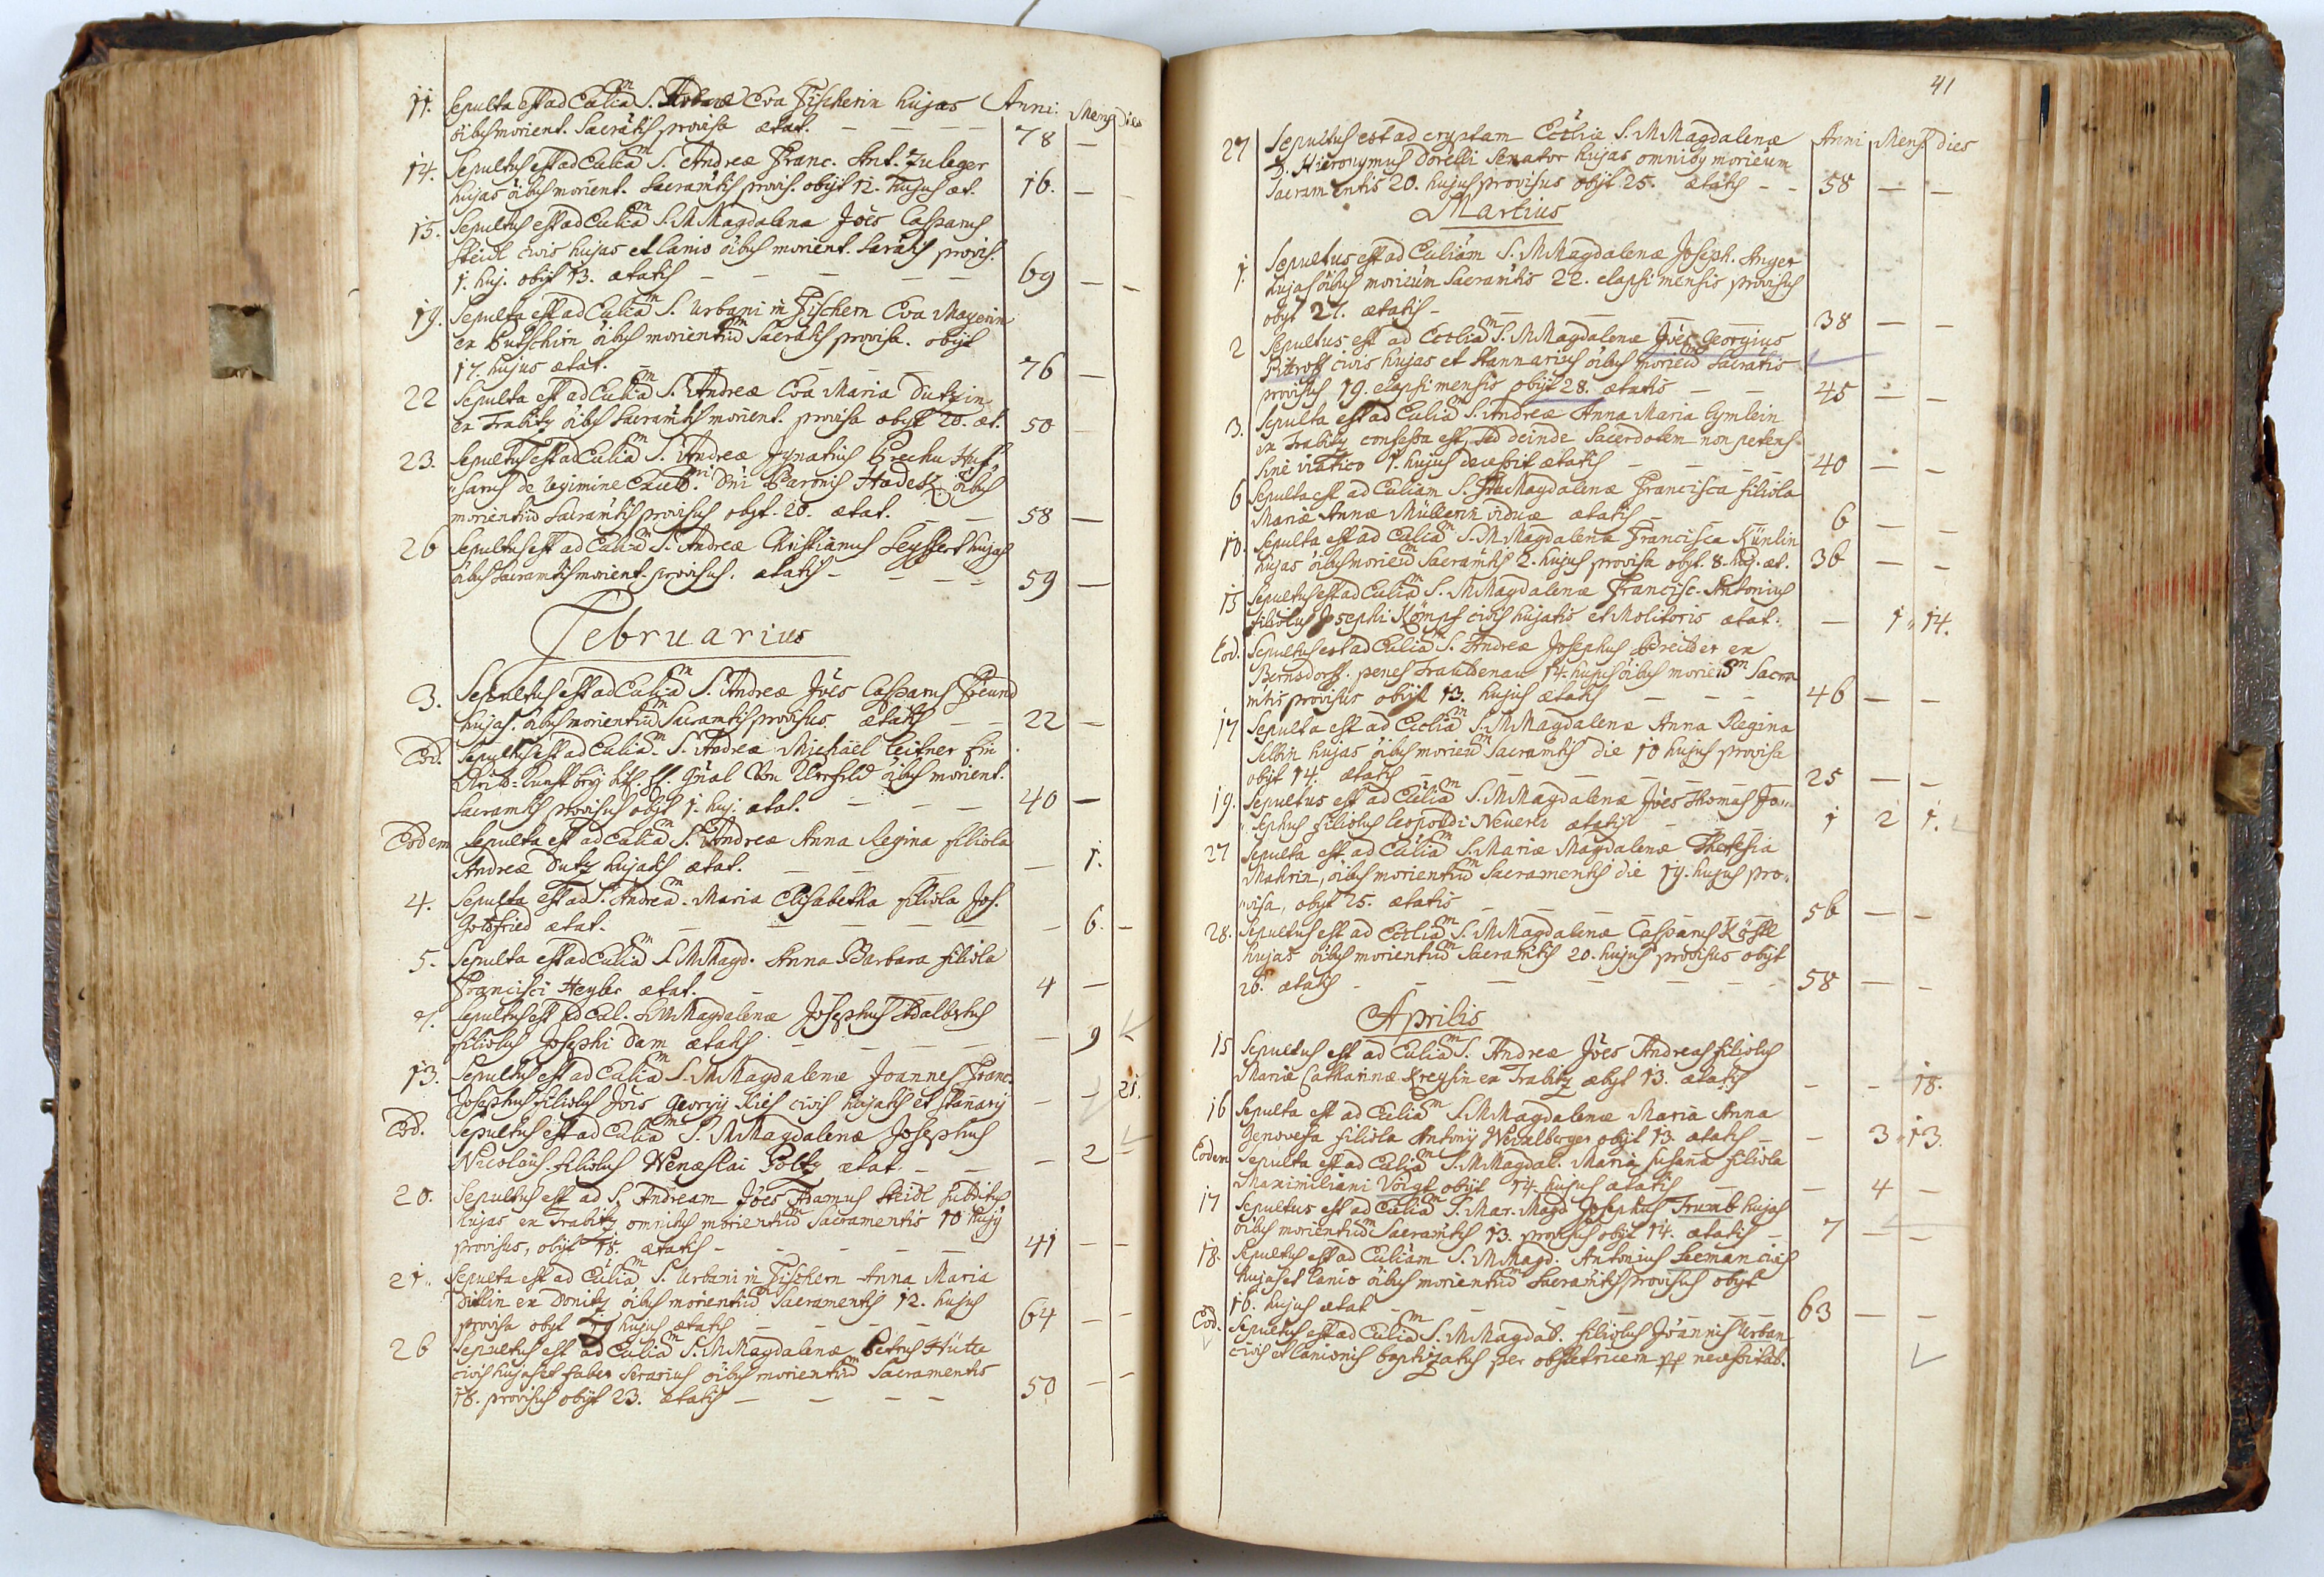 11. Sepulta est ad Eccliam S. Eva Fischerin hujas Anni. Mens. Dies
oibus morient. Sacratis provisa ætat. — — — — 78 —
14. Sepultus est ad Eccliam S. Andreæ Franc. Ant. Zuleger
hujas oibus morient. Sacramtis provis. obijt 12. hujus æt. 16. — —
15. Sepultus est ad Eccliam S. M Magdalena Jões Casparus
Steidl civis hujas et lanio oibus morient. Saratis provis.
1. huj. obijt 13. ætatis — — — — 69 — —
19. Sepulta est ad Eccliam S. Urbani in Fischern Eva Mayerin
ex Putschirn oibus morientiũ Sacratis provisa. obijt
17. hujus ætat. — — — 76 —
22 Sepulta est ad Eccliam S. Andreæ Eva Maria Dutzin
ex Trabitz oibus Sacramtis morient. provisa obijt 20. æt. 50 —
23. Sepultus est ad Eccliam S. Andreæ Ignatius Brechu Huss
sarus de regimine Excell. Dni Baronis Hadesz oibus
morientiũ Sacramtis provisus obijt. 20. ætat. — — 58 —
26 Sepultus est ad Eccliam S. Andreæ Christianus Seyffert hujas
oibus Sacramtis morient. provisus. ætatis — — — 59 —
Februarius
3. Sepultus est ad Eccliam S. Andreæ Jões Casparus Freund
hujas. oibus morientiũ Sacramtis provisus ætatis — — 22 —
Eod. Sepultus est ad Eccliam S. Andreæ Michael Leitner
Gnãl Von oibus morient.
Sacramtis provisus obijt 1. huj. ætat. — — — 40 —
Eodem Sepulta est ad Eccliam S. Andreæ Anna Regina filiola
Andreæ Dutz hujatis ætat. — — — — 1.
4. Sepulta est ad S. Andreã. Maria Elisabetha filiola Jos.
Gottfried ætat. — — — — — 6. —
5. Sepulta est ad Eccliam S. M Magd. Anna Barbara filiola
Francisci Heyler ætat. — — — 4 —
7. Sepultus est ad Eccl. S. M Magdalenæ Josephus Adalbertus
filiolus Josephi Dam ætatis — — — — 9
13. Sepultus est ad Eccliam S. M Magdalenæ Joannes Franc.
Josephus filiolus Jõis Georgij Kies civis hujatis et Stañarij — — 21.
Eod. Sepultus est ad Eccliam S. M Magdalenæ Josephus
Nicolaus filiolus Wenzeslai Poltz ætat. — — — 2 —
20. Sepultus est ad S. Andream Jões Adamus Steidl subditus
hujas ex Trabitz omnibus morientiũ Sacramentis 10 hujus
provisus, obijt 18. ætatis — — — — 41 — —
21. Sepulta est ad Eccliam S. Urbani in Fischern Anna Maria
Dittlin ex Donitz oibus morientiũ Sacramentis 12. hujus
provisa obijt 19 hujus ætatis — — — 64 — —
26 Sepultus est ad Eccliam S. M Magdalenæ Petrus Hütte
civis hujas et faber serarius oibus morientiũ Sacramentis
18. provisus obijt 23. ætatis — — — — 50 — —
41
27 Sepultus est ad cryptam Eccliæ S. M Magdalenæ Anni Mens. dies
D. Hieronymus Dorelli Senator hujas omniby morieum
Sacramentis 20. hujus provisus obijt 25. ætatis — — 58 — —
Martius
1. Sepultus est ad Eccliam S. M Magdalenæ Joseph. Anger
hujas oibus morieum Sacramtis 22. elapsi mensis provisus
obijt 27. ætatis — — — — — 38 — —
2 Sepultus est ad Eccliam S. M Magdalenæ Jões Georgius
Pittroff civis hujas et Stannarius oibus morieũ Sacratis
provisus 19. elapsi mensis obijt 28. ætatis — — 45 — —
3. Sepulta est ad Eccliam S. Andreæ Anna Maria Gymlein
ex Trabitz confessa est, sed deinde Sacerdotem non petens
sine viatico 1. hujus decessit ætatis — — — 40 — —
6 Sepulta est ad Eccliam S. M Magdalenæ Francisca filiola
Mariæ Annæ Müllerin viduæ ætatis — 6 — —
10. Sepulta est ad Eccliam S. M Magdalena Francisca Künlin
hujas oibus morieũ Sacramtis 2. hujus provisa obijt. 8. huj. æt. 36 — —
15 Sepultus est ad Eccliam S. M Magdalenæ Francisc. Antonius
filiolus Josephi Kömpf civis hujatis et Molitoris ætat. — 1. 14.
Eod. Sepultus est ad Eccliam S. Andreæ Josephus Breitter ex
Bernsdorff penes Trautenau 14. hujus oibus morieũ Sacra
mtis provisus obijt 13. hujus ætatis — — — 46 — —
17 Sepulta est ad Eccliam S. M Magdalenæ Anna Regina
Selbin hujas oibus morieũ Sacramtis die 10 hujus provisa
obijt 14. ætatis — — — — — 25 — —
19. Sepultus est ad Eccliam S. M Magdalenæ Jões Thomas Jo-
sephus filiolus Leopoldi Neuerer ætatis — 1 2 1.
27 Sepulta est ad Eccliam S. Mariæ Magdalenæ Theresia
Mahrin, oibus morientiũ Sacramentis die 19. hujus pro-
visa, obijt 25. ætatis — — — — — 56 — —
28. Sepultus est ad Eccliam S. M Magdalenæ Casparus Köstl
hujas oibus morientiũ Sacramtis 20. hujus provisus obijt
26. ætatis — — — — — 58 — —
Aprilis
15 Sepultus est ad Eccliam S. Andreæ Jões Andreas filiolus
Mariæ Catharinæ Kreysin ex Trabitz obijt 13. ætatis — — 18.
16 Sepulta est ad Eccliam S. M Magdalenæ Maria Anna
Genovefa filiola Antonij Weinlberger obijt 13. ætatis — — 3. 13.
Eodem Sepulta est ad Eccliam S. M Magdal. Maria Susaña filiola
Maximiliani Voigt obijt 14. hujus ætatis — — 4 —
17 Sepultus est ad Eccliam S. Mar. Magd Josephus Trumb hujas
oibus morientiũ Sacramtis 13. provisus obijt 14. ætatis — 7 — —
18. Sepultus est ad Eccliam S. M Magd. Antonius Seeman civis
hujas et lanio oibus morientiũ Sacramtis provisus obijt
16. hujus ætat — — — — 63 — —
Eod. Sepultus est ad Eccliam S. M Magdal. filiolus Joannis Urban
civis et lanionis baptizatus per obstetricem necessitat.